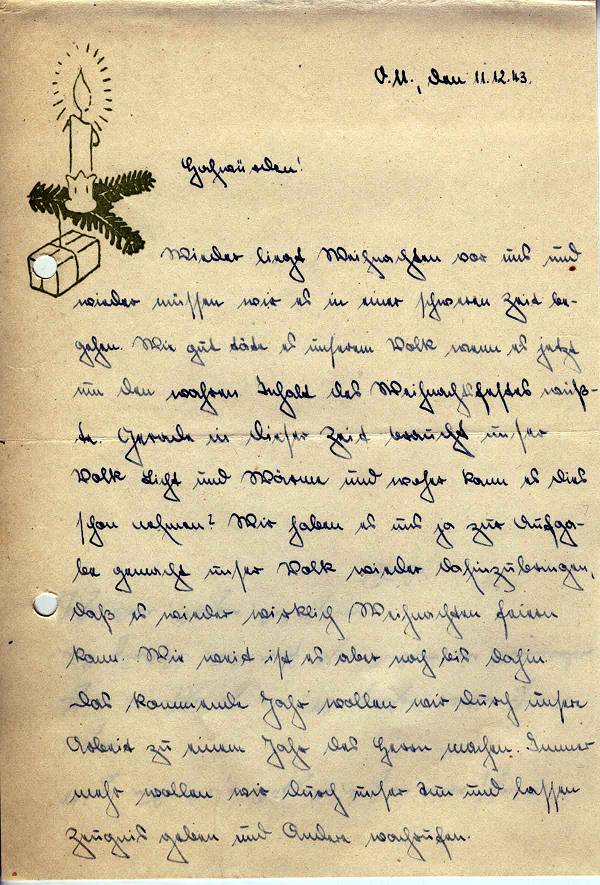 O.U., den 11.12.43.
Hochwürden!
Wieder liegt Weihnachten vor uns und
wieder müssen wir es in einer schweren Zeit be-
gehen. Wie gut täte es unserem Volk wenn es jetzt
um den wahren Inhalt des Weihnachtsfestes wüß-
te. Gerade in dieser Zeit braucht unser
Volk Licht und Wärme und woher kann es dies
schon nehmen? Wir haben es uns ja zur Aufga-
be gemacht unser Volk wieder dahinzubringen,
daß es wieder wirklich Weihnachten feiern
kann. Wie weit ist es aber noch bis dahin.
Das kommende Jahr wollen wir durch unsere
Arbeit zu einem Jahr des Herrn machen. Immer
mehr wollen wir durch unser Tun und Lassen
Zeugnis geben und Andere wachrufen.